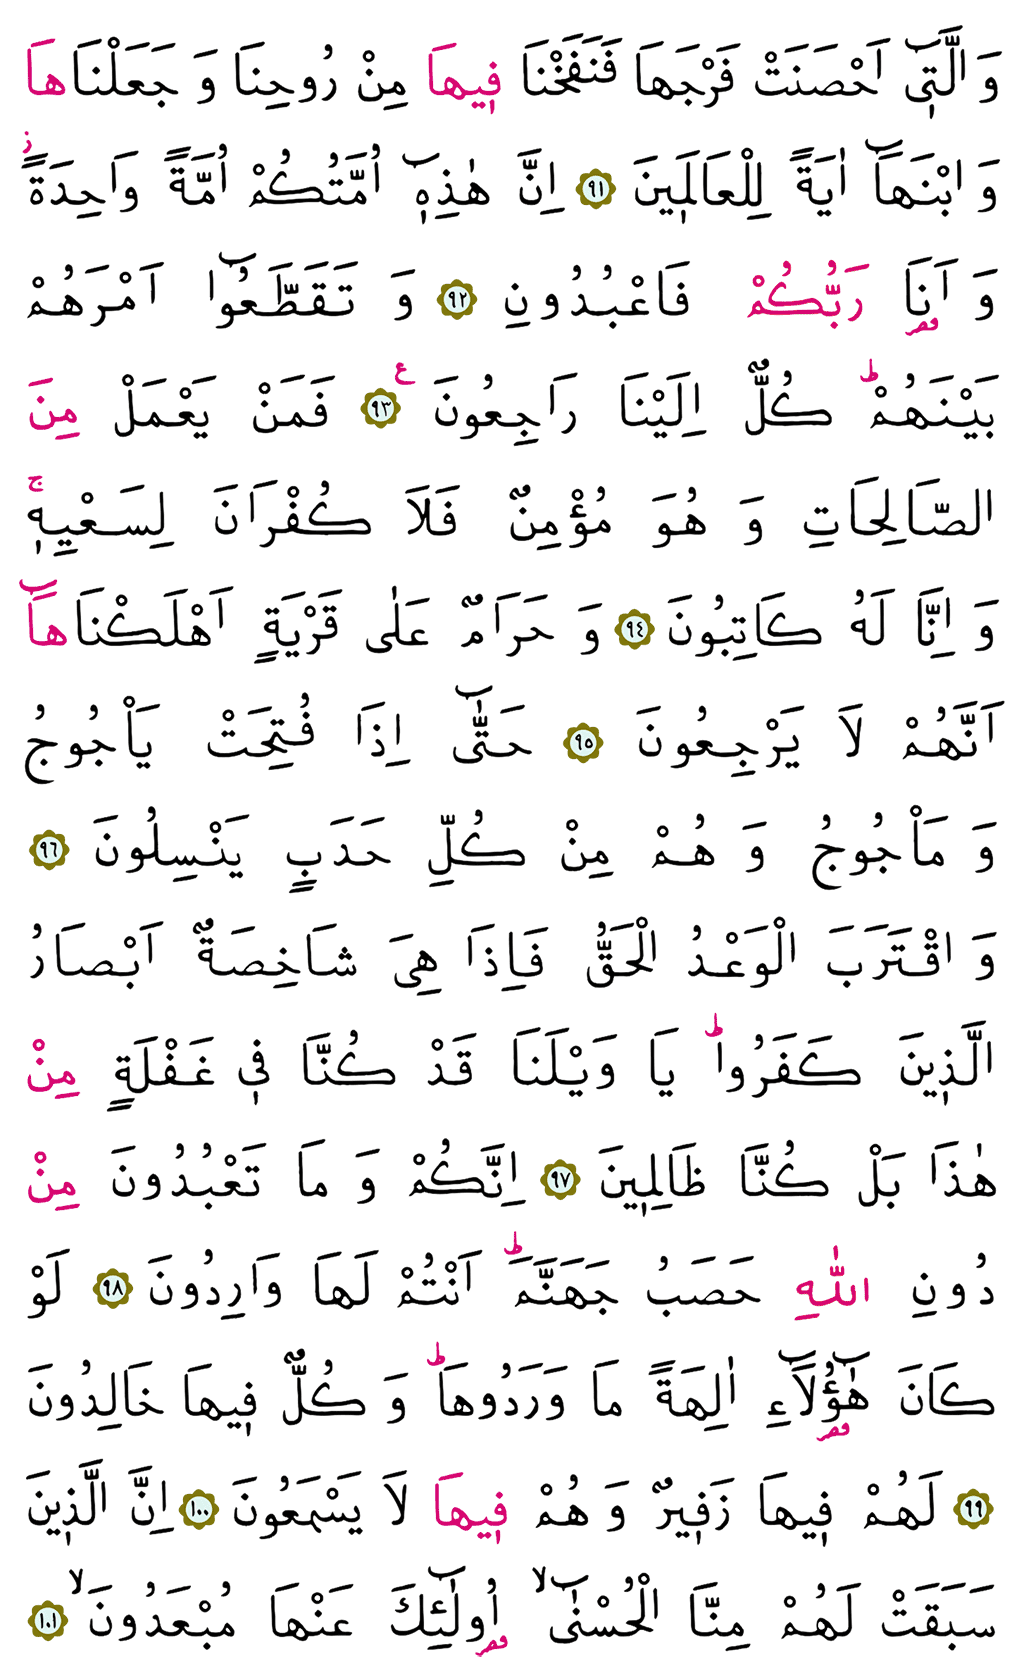 وَ الَّتٖٓي اَحْصَنَتْ فَرْجَهَا فَنَفَخْنَا فٖيهَا مِنْ رُوحِنَا وَ جَعَلْنَاهَا
وَ ابْنَهَٓا اٰيَةً لِلْعَالَمٖينَ ﴿٩١﴾ اِنَّ هٰذِهٖٓ اُمَّتُكُمْ اُمَّةً وَاحِدَةًؗ
وَ اَنَا۬ رَبُّكُمْ فَاعْبُدُونِ ﴿٩٢﴾ وَ تَقَطَّعُٓوا اَمْرَهُمْ
بَيْنَهُمْؕ كُلٌّ اِلَيْنَا رَاجِعُونَ ﴿٩٣﴾ ع فَمَنْ يَعْمَلْ مِنَ
الصَّالِحَاتِ وَ هُوَ مُؤْمِنٌ فَلَا كُفْرَانَ لِسَعْيِهٖۚ
وَ اِنَّا لَهُ كَاتِبُونَ ﴿٩٤﴾ وَ حَرَامٌ عَلٰى قَرْيَةٍ اَهْلَكْنَاهَٓا
اَنَّهُمْ لَا يَرْجِعُونَ ﴿٩٥﴾ حَتّٰٓى اِذَا فُتِحَتْ يَاْجُوجُ
وَ مَاْجُوجُ وَ هُمْ مِنْ كُلِّ حَدَبٍ يَنْسِلُونَ ﴿٩٦﴾
وَ اقْتَرَبَ الْوَعْدُ الْحَقُّ فَاِذَا هِىَ شَاخِصَةٌ اَبْصَارُ
الَّذٖينَ كَفَرُواؕ يَا وَيْلَنَا قَدْ كُنَّا فٖي غَفْلَةٍ مِنْ
هٰذَا بَلْ كُنَّا ظَالِمٖينَ ﴿٩٧﴾ اِنَّكُمْ وَ مَا تَعْبُدُونَ مِنْ
دُونِ اللّٰهِ حَصَبُ جَهَنَّمَؕ اَنْتُمْ لَهَا وَارِدُونَ ﴿٩٨﴾ لَوْ
كَانَ هٰٓؤُ۬لَٓاءِ اٰلِهَةً مَا وَرَدُوهَاؕ وَ كُلٌّ فٖيهَا خَالِدُونَ
﴿٩٩﴾ لَهُمْ فٖيهَا زَفٖيرٌ وَ هُمْ فٖيهَا لَا يَسْمَعُونَ ﴿١٠٠﴾ اِنَّ الَّذٖينَ
سَبَقَتْ لَهُمْ مِنَّا الْحُسْنٰٓىۙ اُو۬لٰٓئِكَ عَنْهَا مُبْعَدُونَۙ ﴿١٠١﴾